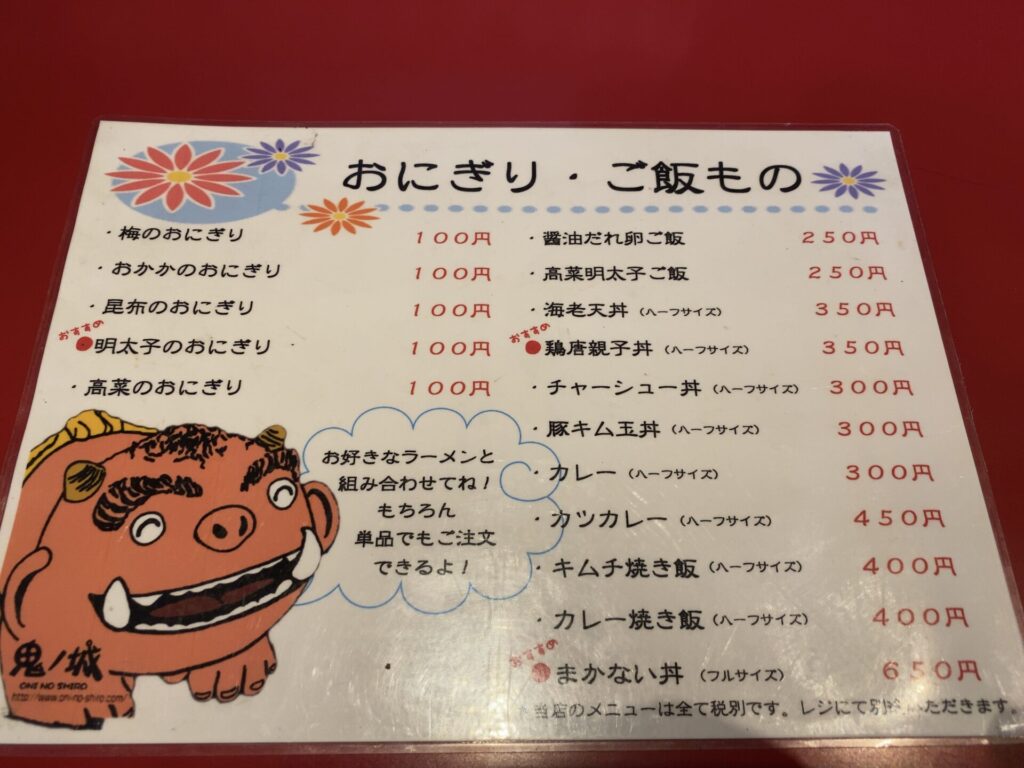 おにぎり・ご飯もの
・梅のおにぎり 100円
・おかかのおにぎり 100円
・昆布のおにぎり 100円
おすすめ
●明太子のおにぎり 100円
・高菜のおにぎり 100円
・醤油だれ卵ご飯 250円
・高菜明太子ご飯 250円
・海老天丼（ハーフサイズ） 350円
おすすめ
●鶏唐親子丼（ハーフサイズ） 350円
・チャーシュー丼（ハーフサイズ） 300円
・豚キム玉丼（ハーフサイズ） 300円
・カレー（ハーフサイズ） 300円
・カツカレー（ハーフサイズ） 450円
・キムチ焼き飯（ハーフサイズ） 400円
・カレー焼き飯（ハーフサイズ） 400円
おすすめ
●まかない丼（フルサイズ） 650円
お好きなラーメンと
組み合わせてね！
もちろん
単品でもご注文
できるよ！
鬼ノ城
ONI NO SHIRO
http://www.oni-no-shiro.com/
当店のメニューは全て税別です。レジにて別 いただきます。